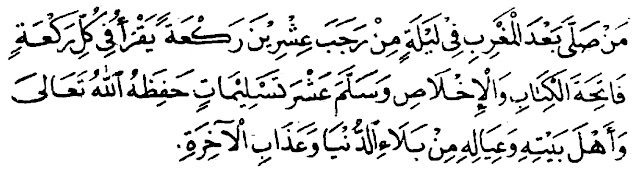 مَنْ صَلَّى بَعْدَ الْمَغْرِبِ فِي لَيْلَةٍ مِنْ رَجَبَ عِشْرِيْنَ رَكْعَةً يَقْرَأُ فِي كُلِّ رَكْعَةٍ
فَاتِحَةَ الْكِتَابِ وَالْإِخْلَاصِ وَسَلَّمَ عَشْرَ تَسْلِيْمَاتٍ حَفِظَهُ اللهُ تَعَالَى
وَأَهْلَ بَيْتِهِ وَعِيَالِهِ مِنْ بَلَاءِ الدُّنْيَا وَعَذَابِ الْآخِرَةِ.